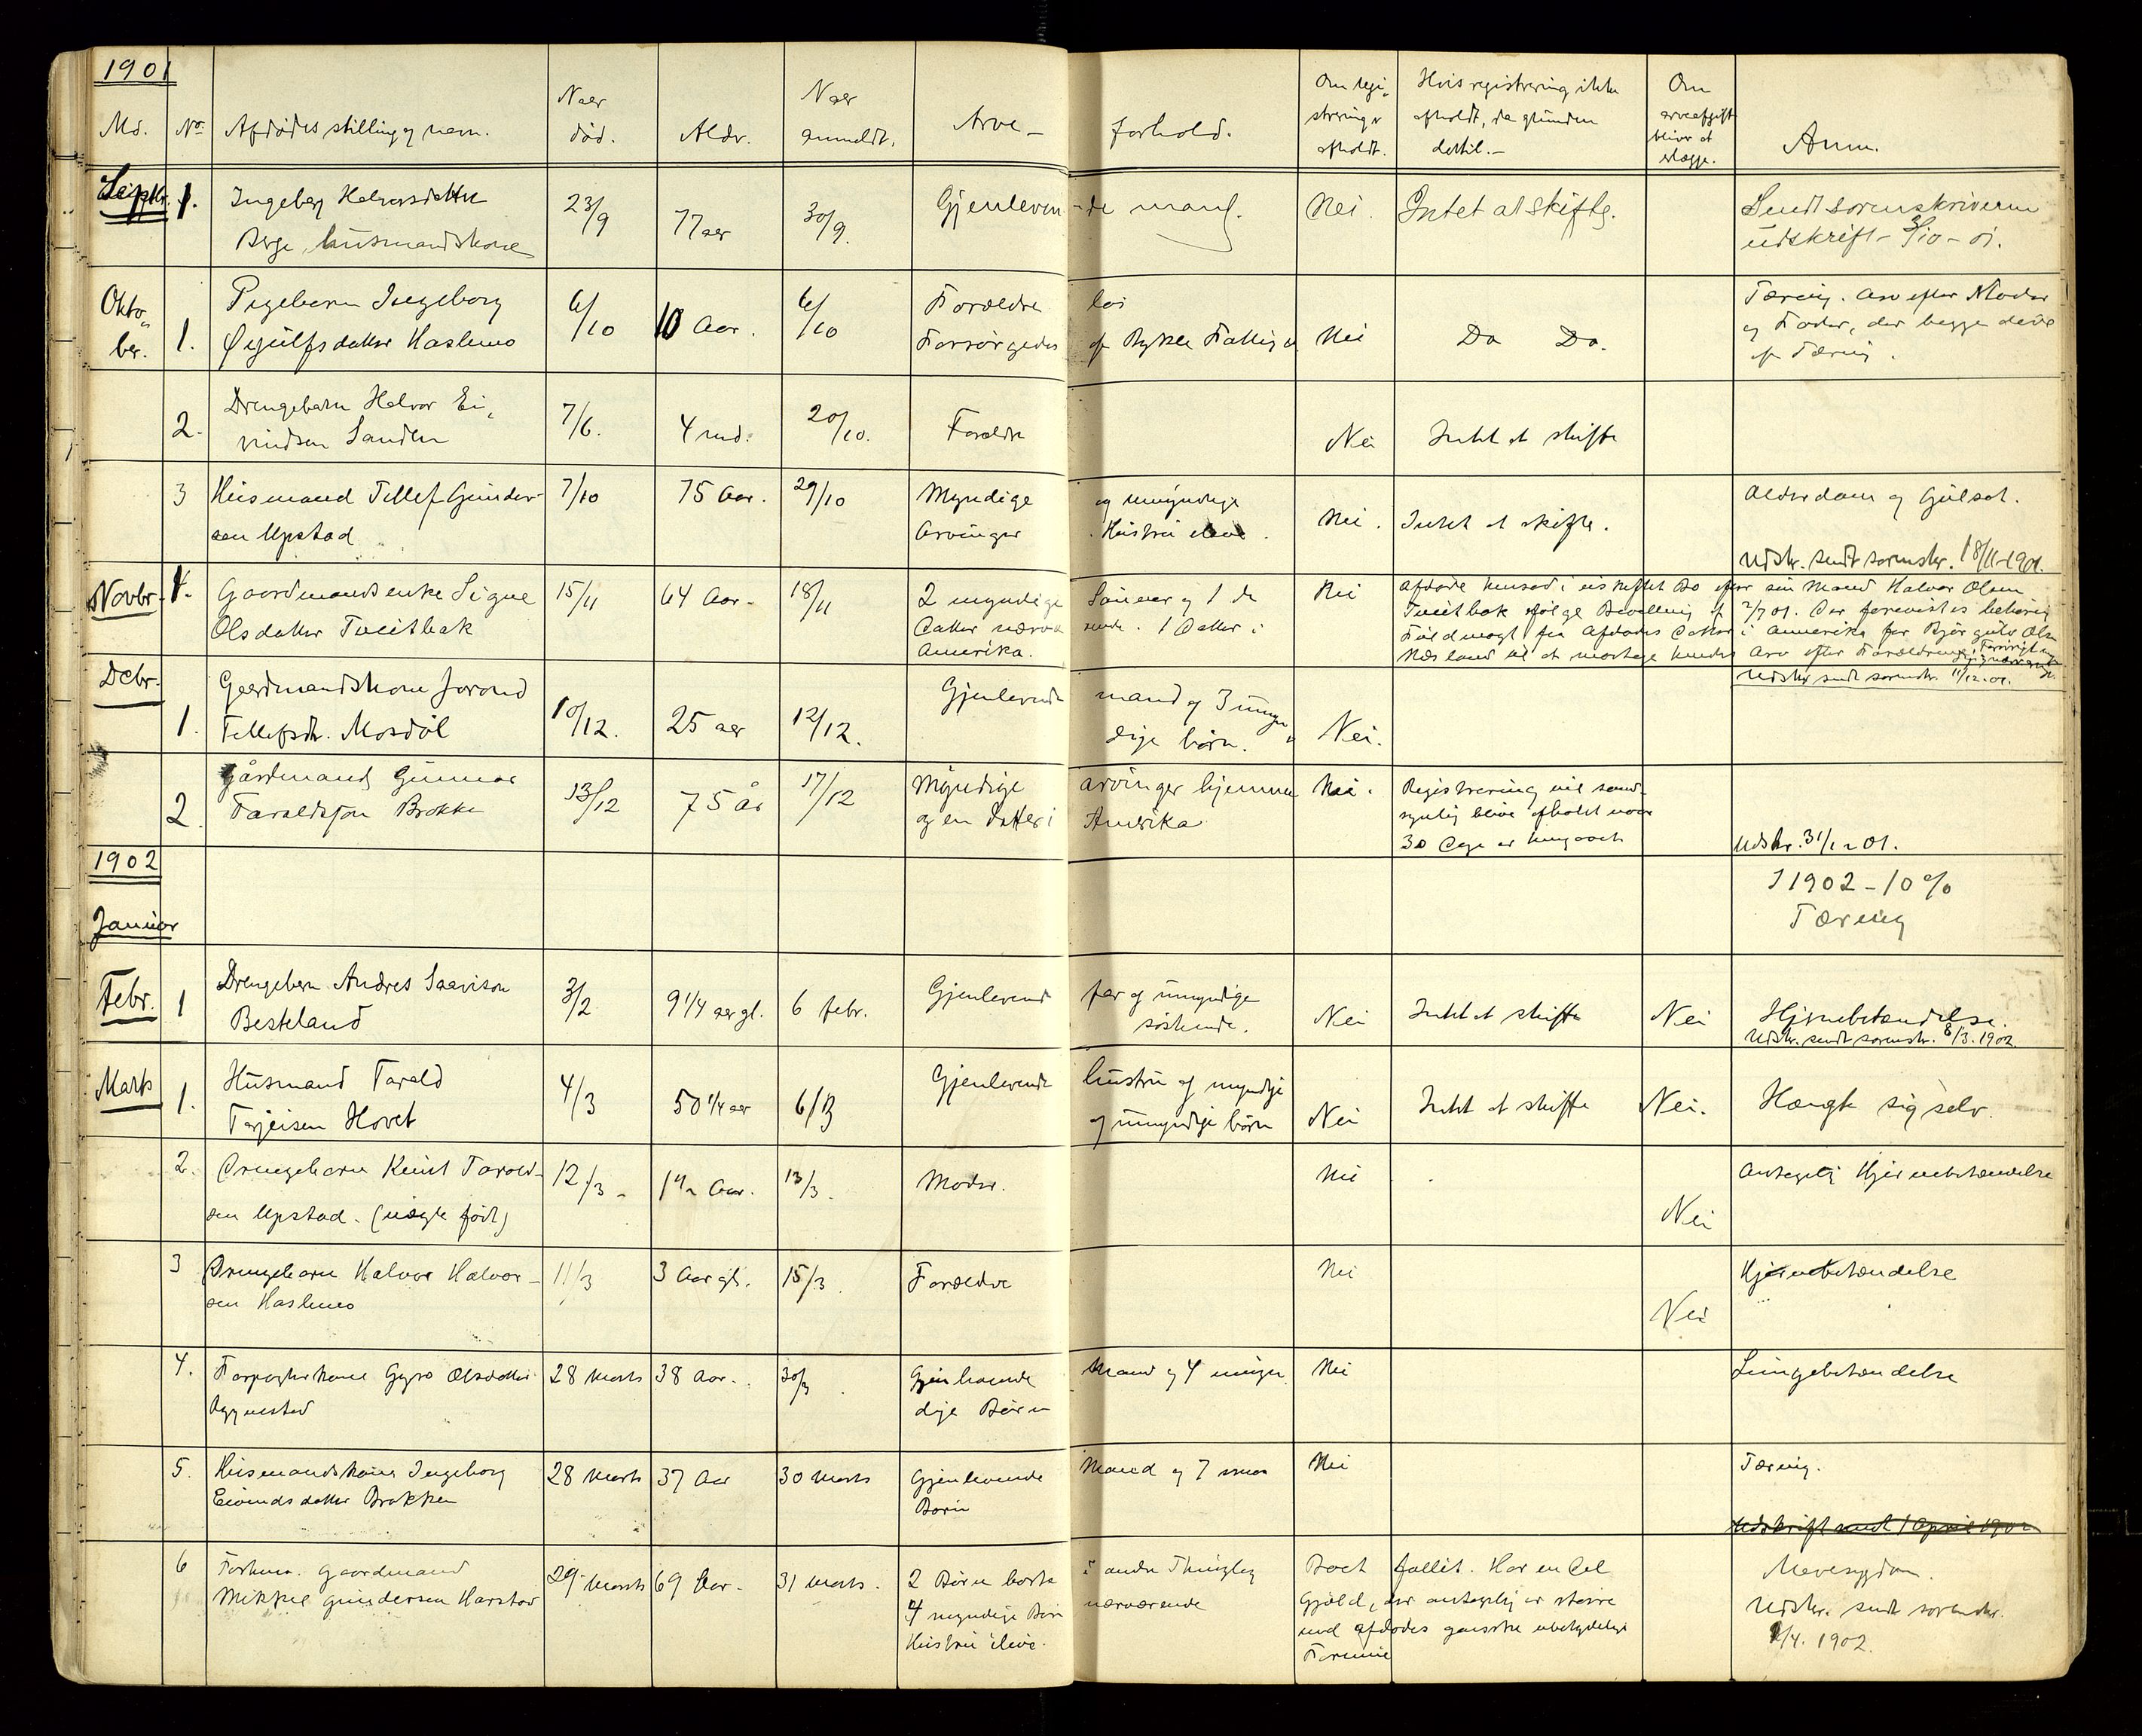 1901
Md.
No.
Afdødes stilling og navn.
Naar
død.
Alder.
Naar
anmeldt.
Arve-
forhold.
Om regi-
strering er
afholdt.
Hvis registrering ikke
afholdt, da grunden
dertil.-
Om
arveafgift
bliver at
erlægge.
Anm.
Septbr. 1.
Ingeborg Halvorsdatter
Berge, husmandskone
23/9
77 aar
30/9.
Gjenleven-
de mand.
Nei.
Intet at skifte.
Sendt sorenskriveren
udskrift - 3/10 - 01.
Okto-
ber. 1.
Pigebarn Ingeborg
Øyulfsdatter Haslemo
6/10
10 Aar.
6/10
Forældre
løs
Forsørgedes
af Bykle Fattigv.
Nei
Do Do.
Tæring. Arv efter Moder
og Fader, der begge døde
af Tæring.
2.
Drengebarn Halvor Ei-
vindsen Sanden
7/6.
4 md.
20/10.
Forældre
Nei
Intet at skifte
3
Husmand Tellef Gunder-
sen Upstad
7/10
75 Aar.
29/10
Myndige
og umyndige
Arvinger
Hustru ilive.
Nei.
Intet at skifte.
Alderdom og Gulsot.
Udskr. sendt sorenskr. 18/11-1901.
Novbr. 1.
Gaardmandsenke Signe
Olsdatter Tveitbak
15/11
64 Aar.
18/11
2 myndige
Sønner og 1 do
Datter nærvæ
rende. 1 Datter i
Amerika.
Nei
Afdøde hensad i uskiftet Bo efter sin Mand Halvor Olsen
Tveitbak ifølge Bevilling af 2/7 01. Der forevistes behørig
Fuldmagt fra Afdødes Datter i Amerika for Bjørgulv Olsen
Næsland til at modtage hendes Arv efter Forældrene.
Udskr. sendt sorenskr. 11/12-01.
Debr.
1.
Gaardmandskone Jorond
Tellefsdtr. Mosdøl
10/12.
25 aar
12/12.
Gjenlevende
mand og 3 umyn-
dige børn.
Nei.
2.
Gårdmand Gunnar
Taraldssøn Brokke
13/12
75 år
17/12
Myndige
arvinger hjemme
og en datter i
Amerika
Nei.
Registrering vil sand-
synlig blive afholdt naar
30 Dage er hengaaet
Udskr. 31/1 - 01.
1902
Januar
I 1902 - 10 %
Tæring
Febr. 1
Drengebarn Andres Saavison
Besteland
3/2
9 1/4 aar gl.
6 febr.
Gjenlevende
far og umyndige
søskende.
Nei
Intet at skifte
Nei
Hjernebetændelse.
Udskr. sendt sorenskr. 8/3. 1902.
Marts 1.
Husmand Tarald
Tarjeisen Hovet
4/3
50 1/4 aar
6/3
Gjenlevende
hustru og myndige
og umyndige børn
Nei
Intet at skifte
Nei.
Hængte sig selv.
2.
Drengebarn Knut Tarald-
sen Upstad. (uægte født)
12/3 -
Aar.
13/3.
Moder.
Nei
Nei
Antagelig Hjernebetændelse
3
Drengebarn Halvor Halvor-
sen Haslemo
11/3
3 Aar gl.
15/3
Forældre
Nei
Nei
Hjernebetændelse
4.
Forpagterkone Gyro Olsdatter
Rygnestad
28 Marts
38 Aar.
30/3
Gjenlevende
Mand og 4 umyn
dige Børn
Nei
Lungebetændelse
5.
Husmandskone Ingeborg
Eivindsdatter Brokken
28 Marts
37 Aar
30 Marts
Gjenlevende
Mand og 7 smaa
Børn
Nei
Tæring.
Udskrift sendt 1 April 1902
6
Forhen. Gaardmand
Mikkel Gundersen Harstad
29 Marts
69 Aar.
31 Marts.
2 Børn borte
i andre Thinglag
4 myndige Børn
nærværende
Hustru ilive.
Boet fallit. Har en Del
Gjæld, der antagelig er større
end afdødes ganske ubetydelige
Formue
Mavesygdom.
Udskr. sendt sorenskr.
1/4. 1902.